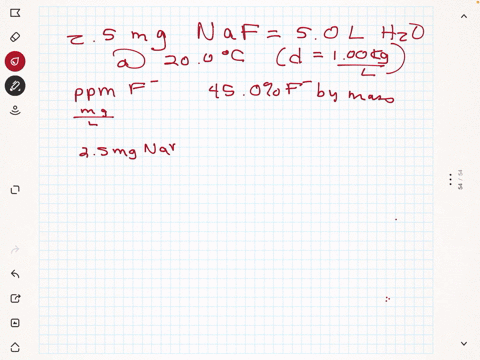 2.5 mg NaF = 5.0 L H2O
a) 20.0°C (d = 1.00kg/L)
ppm F⁻ 45.0% F⁻ by mass
mg/L
2.5mg Na
54 / 54